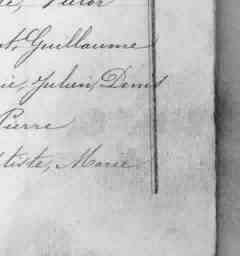 Victor
Guillaume
Julien, Denis
Pierre
Marie